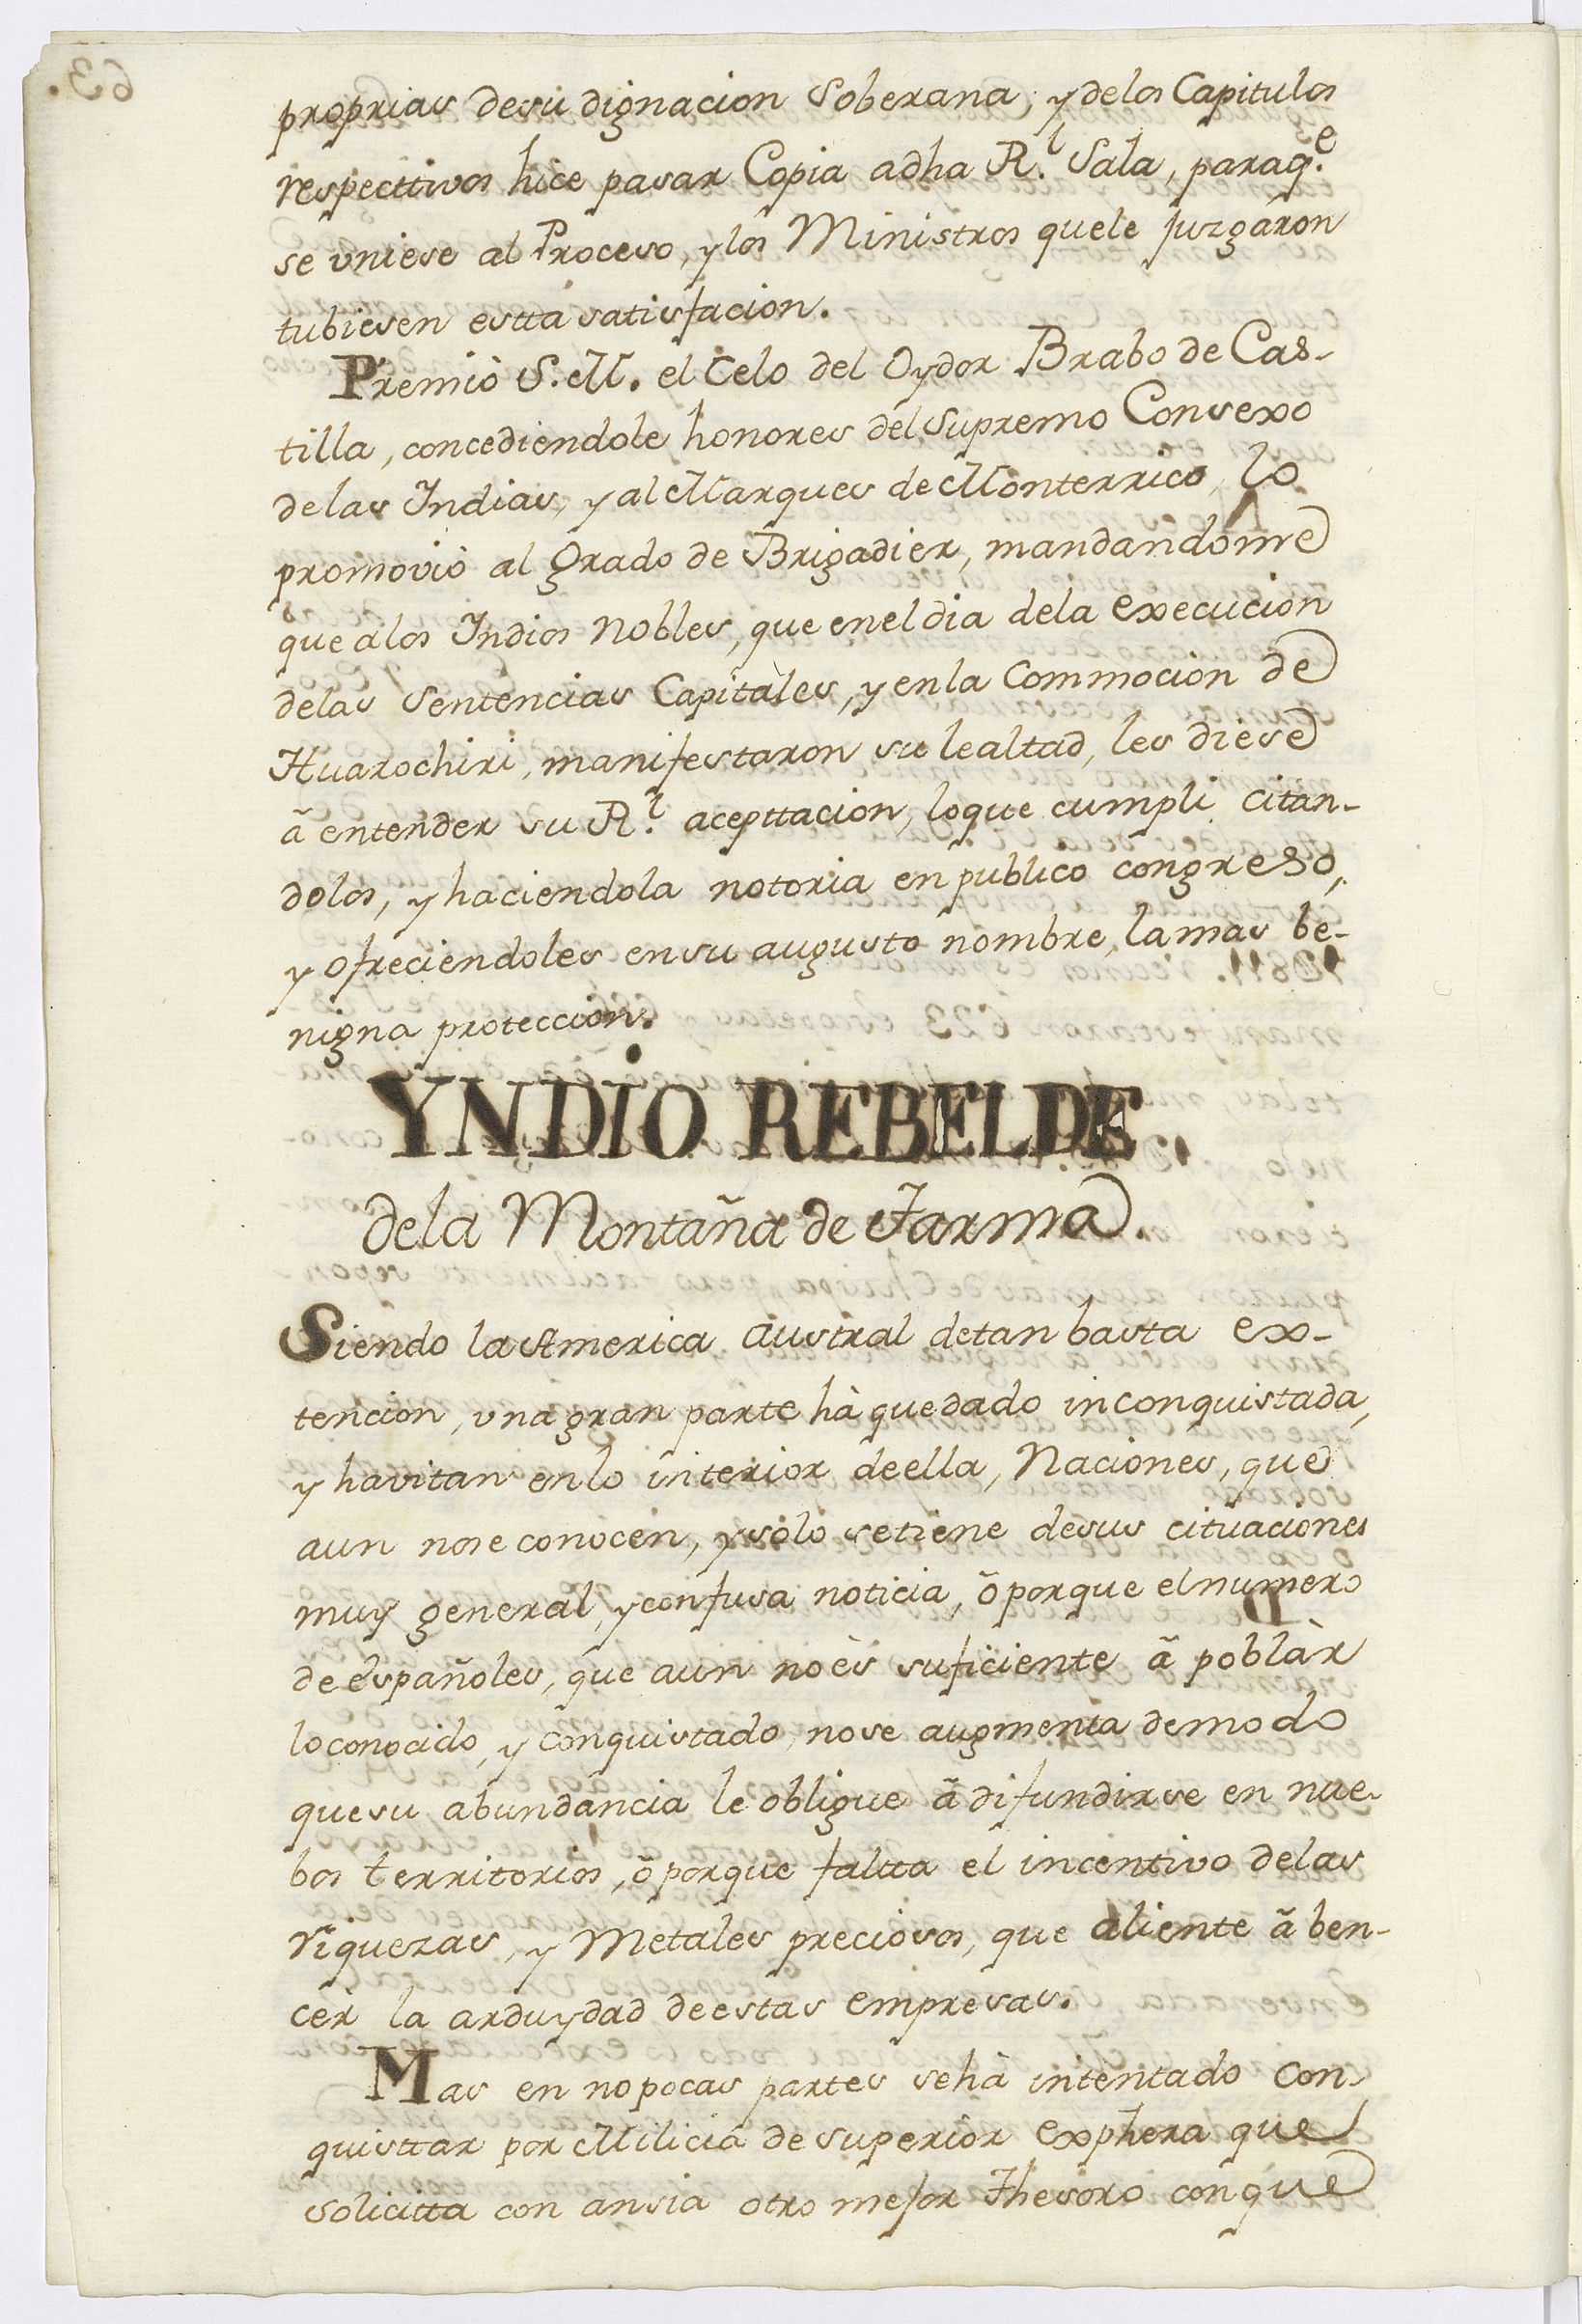 proprias desu dignacion Soberana, y delos Capitulos
respecttivos hice pasar Copia adha R.l Sala, paraq.e
se uniese al Proceso, y los Ministros quele juzgaron
tubiesen estta satisfacion.
Premiò S. M. el Celo del Oydor Brabo de Cas-
tilla, concediendole honores del Supremo Consexo
delas Indias, y al Marques de Monterrico, lo
promoviò al Grado de Brigadier, mandandome
que alos Indios Nobles, que enel dia dela execucion
delas Sentencias Capitàles, y enla Commocion de
Huarochiri, manifestaron su lealtad, les diese
ã entender su R.l acepttacion, loque cumpli citan-
dolos, y haciendola notoria en publico congreso,
y ofreciendoles ensu augusto nombre, lamas be-
nigna proteccion.
YNDIO REBELDE.
dela Montaña de Tarma.
Siendo la America austral detan basta ex-
tencion, una gran parte hà quedado inconquistada,
y havitan enlo interior deella, Naciones, que
aun nose conocen, y solo setiene desus cituaciones
muy general, y confusa noticia, õ porque el numero
de españoles, que aun noès suficiente ã poblàr
lo conocido, y conquistado, nose augmenta demodo
quesu abundancia le obligue ã difundirse en nue-
bos territorios, õ porque faltta el incentivo delas
riquezas, y Metales preciosos, que aliente ã ben-
cer la arduydad deestas empresas.
Mas en no pocas partes sehà intentado con-
quisttar por Milicia de superior exphera que
solicitta con ansia otro mejor Thesoro conque